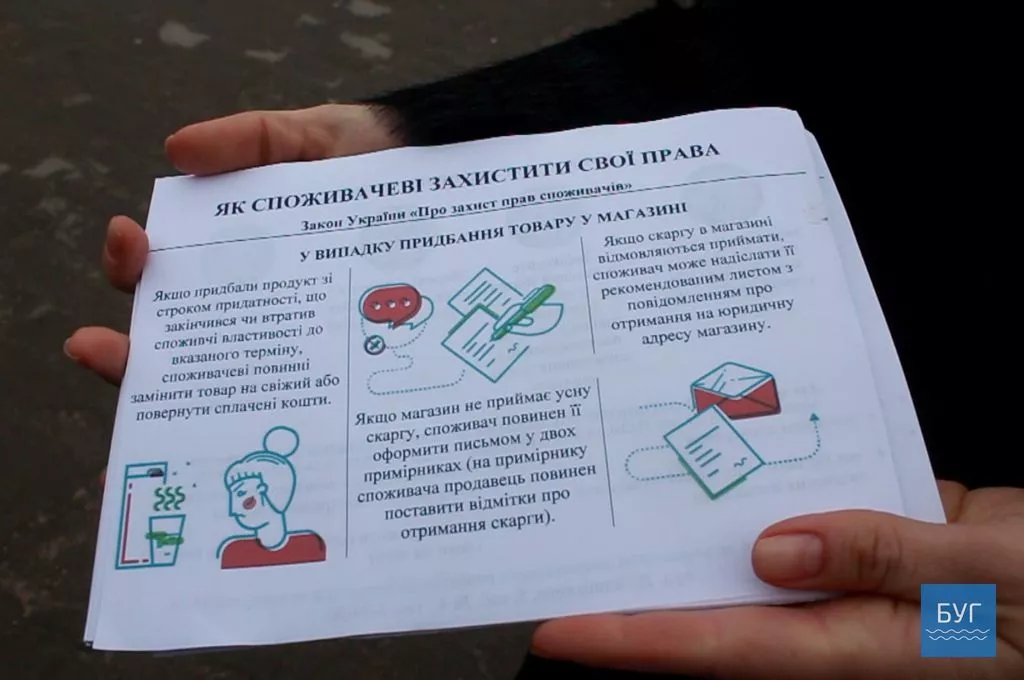 ЯК СПОЖИВАЧЕВІ ЗАХИСТИТИ СВОЇ ПРАВА
Закон України «Про захист прав споживачів»
У ВИПАДКУ ПРИДБАННЯ ТОВАРУ У МАГАЗИНІ
Якщо придбали продукт зі
строком придатності, що
закінчився чи втратив
споживчі властивості до
вказаного терміну,
споживачеві повинні
замінити товар на свіжий або
повернути сплачені кошти.
Якщо магазин не приймає усну
скаргу, споживач повинен її
оформити письмом у двох
примірниках (на примірнику
споживача продавець повинен
поставити відмітки про
отримання скарги).
Якщо скаргу в магазині
відмовляються приймати,
споживач може надіслати її
рекомендованим листом з
повідомленням про
отримання на юридичну
адресу магазину.
БУГ